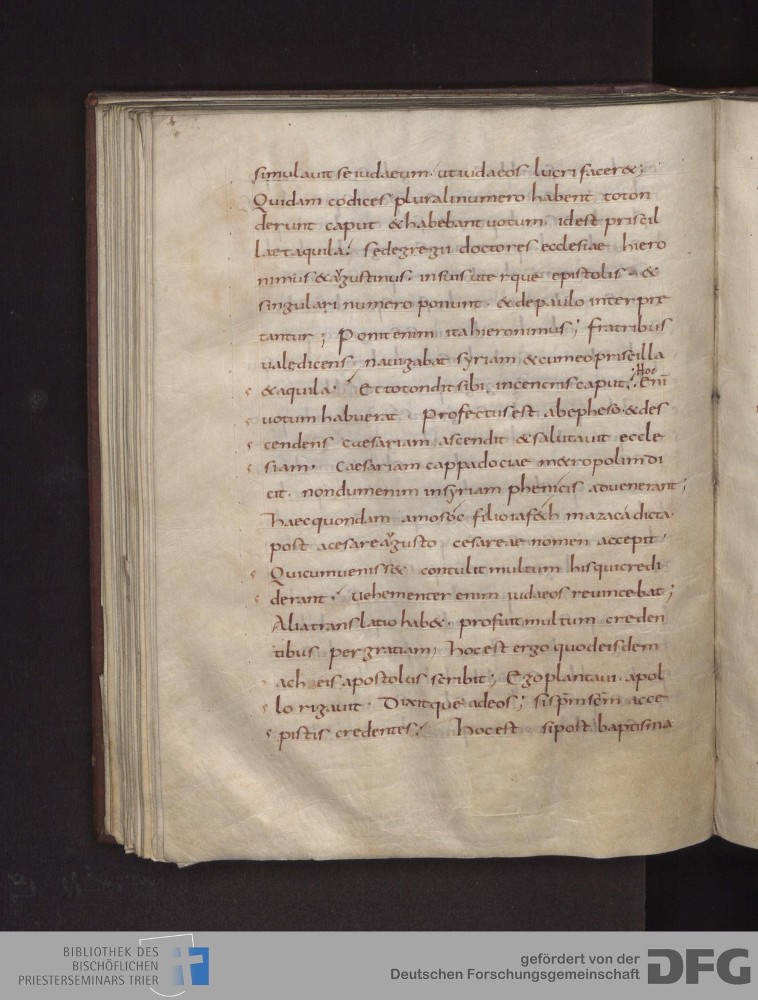 simulauit se iudaeum· ut iudaeos lucri facer&;
Quidam codices plurali numero habent toton
derunt caput & habebant uotum id est priscil
la et aquila; sed egregii doctores ecclesiae hiero
nimus & augustinus· in suis uterque epistolis &
singulari numero ponunt· & de paulo interpre
tantur; Ponit enim ita hieronimus; fratribus
ualedicens nauigabat syriam & cum eo priscilla
& aquila· Et totondit sibi incencris caput; Hoc Eni
uotum habuerat· Profectus est ab epheso & des
cendens caesariam ascendit & salutauit eccle
siam· Caesariam cappadociae m&ropolim di
cit· nondum enim in syriam phenicis aduenerant;
haec quondam a mosoc filio iafeth mazaca dicta·
post a cesare augusto cesareae nomen accepit·
Qui cum uenisse& contulit multum his qui credi
derant· uehementer enim iudaeos reuincebat;
Alia translatio hab&· profuit multum creden
tibus per gratiam; hoc est ergo quod eisdem
ach eis apostolus scribit; Ego plantaui· apol
lo rigauit· Dixitque ad eos; si spm scm acce
pistis credentes; hoc est si post baptisma
BIBLIOTHEK DES
BISCHÖFLICHEN
PRIESTERSEMINARS TRIER
gefördert von der
Deutschen Forschungsgemeinschaft
DFG